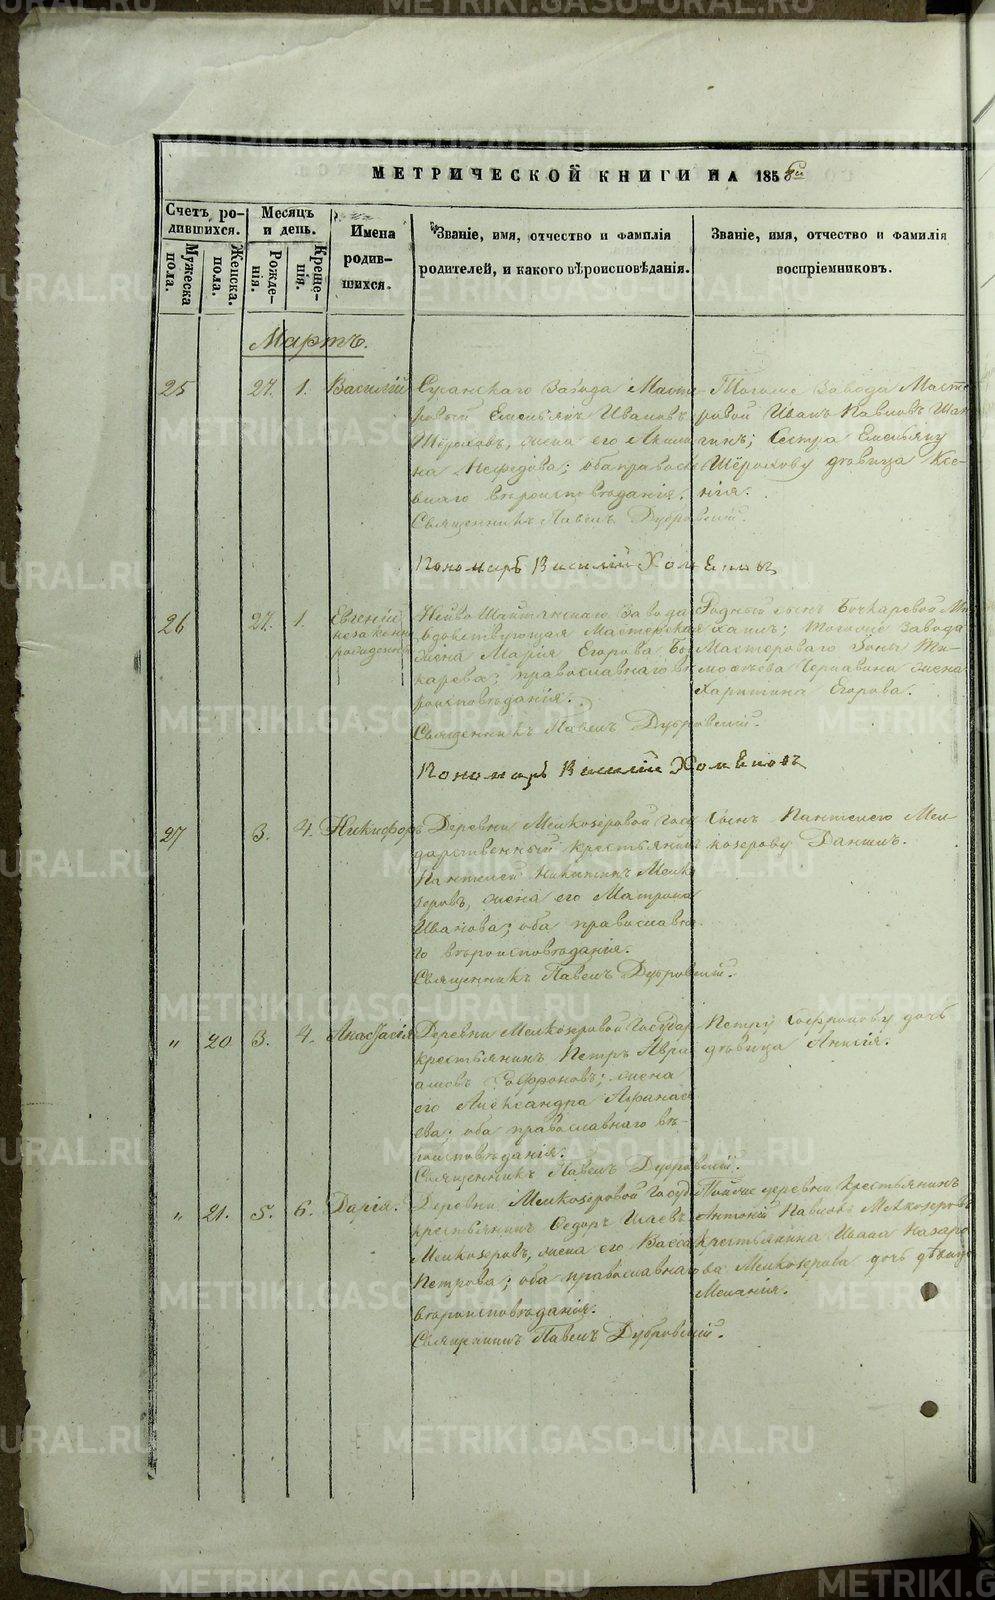 МЕТРИЧЕСКОЙ КНИГИ НА 1858й
Счетъ ро-
дившихся.
Мужеска
пола.
Женска.
пола.
Месяцъ
и день.
Рожде-
нія.
Креще-
нія.
Имена
родив-
шихся.
Званіе, имя, отчество и фамилія
родителей, и какого вѣроисповѣданія.
Званіе, имя, отчество и фамилія
воспріемниковъ.
Мартъ.
25
27.
1.
Василій
Сусанскаго Завода Масте-
ровый Емельянъ Ивановъ
Шёроховъ, жена его Акили-
на Мефодова; оба правосл
внаго вѣроисповѣданія.
Священникъ Павелъ Дубровскій.
Пономарь Василій Хомяковъ
Тогоже Завода Масте
ровой Иванъ Павловъ Шан
гинъ; Сестра Емельяну
Шёрохову дѣвица Ксе-
нія.
26
27.
1.
Евгеній
незаконно
рожденный
Нейво Шайтанскаго Завода
вдовствующая Мастерская
жена Марія Егорова Боч
карева; православнаго вѣ
роисповѣданія.
Священникъ Павелъ Дубровскій.
Пономарь Василій Хомяковъ
Родный сынъ Бочкаревой Ми
хаилъ; тогоже Завода
Мастероваго Зоны Ти-
моѳѣева Чернавина жена
Харитина Егорова.
27
3.
4.
Никифоръ
Деревни Мелкозеровой Госу
дарственный крестьянинъ
Пантелей Никитинъ Мелко
зеровъ, жена его Матрона
Иванова; оба православна
го вѣроисповѣданія.
Священникъ Павелъ Дубровскій.
Сынъ Пантелею Мел-
козерову Данилъ.
" 20
3.
4.
Анастасія
Деревни Мелкозеровой Государ
крестьянинъ Петръ Авра
амовъ Софроновъ; жена
его Александра Афанась
ева; оба православнаго вѣ-
роисповѣданія.
Священникъ Павелъ Дубровскій.
Петру Софронову дочь
дѣвица Анисія.
" 21.
5.
6.
Дарія.
Деревни Мелкозеровой Госуд
крестьянинъ Ѳедоръ Исаевъ
Мелкозеровъ, жена его Васса
Петрова; оба православнаго
вѣроисповѣданія.
Священникъ Павелъ Дубровскій.
Тойже деревни крестьянинъ
Антоній Павловъ Мелкозеровъ
крестьянина Ивана Назаро
ва Мелкозерова дочь дѣвица
Меланія.
METRIKI.GASO-URAL.RU